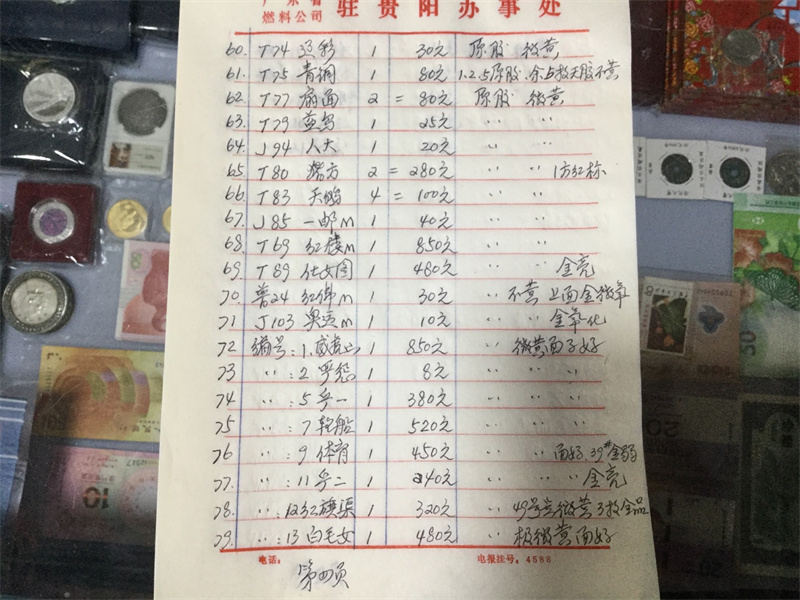 广东省
燃料公司 驻贵阳办事处
60. T74 辽彩 1 30元 原胶 微黄
61. T75 青铜 1 80元 1.2.5原胶.余5枚无胶不黄
62 T77 扇面 2 = 80元 原胶 微黄
63. T79 益鸟 1 25元 〃 〃
64. J94 人大 1 20元 〃 〃
65. T80 猪方 2 = 280元 〃 〃 1方红标
66 T83 天鹅 4 = 100元 〃 〃
67. J85 一邮M 1 40元 〃 〃
68. T69 红楼M 1 850元 〃 〃
69. T89 仕女图 1 480元 〃 〃 金亮
70. 普24 红佛M 1 30元 〃 不黄 上面金微氧
71 J103 奥运M 1 10元 〃 〃 金氧化
72 编号:1.威虎山 1 850元 〃 微黄面子好
73 〃:2 1 8元 〃 〃
74 〃:5 乎一 1 380元 〃 〃
75 〃:7 轮船 1 520元 〃 〃
76 〃:9 体育 1 450元 〃 面好.39#金弱
77. 〃:11 乎二 1 240元 〃 〃 金亮
78 〃:12红旗渠 1 320元 〃 49号票微黄 3枚全品
79. 〃:13 白毛女 1 480元 〃 极微黄面好
电话: 电报挂号:4588
第四页